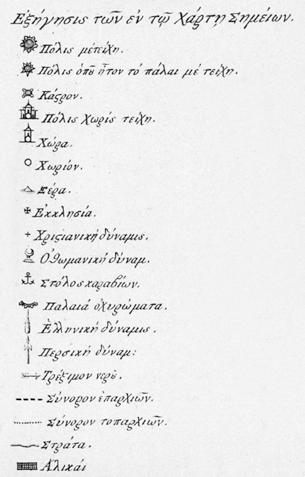 Εξήγησις τῶν εν τῷ Χάρτῃ Σημείων.
Πόλις μὲτείχη.
Πόλις ὁπȣ̃ ἦτον τὸ πάλαι μὲ τείχη.
Κάϛρον.
Πόλις χωρὶς τείχη.
Χώρα.
Χωρίον.
Ξέρα.
Ἐκκλησία.
Χριϛιανικὴ δύναμις.
Ὀθωμανικὴ δύναμ.
Στόλος καραβίων.
Παλαιὰ ὀχυρώματα.
Ἑλληνικὴ δύναμις.
Περσικὴ δύναμ:
Τρέξιμον νερȣ̃.
Σύνορον ἐπαρχιῶν.
Σύνορον τοπαρχιῶν.
Στράτα.
Ἁλικαὶ